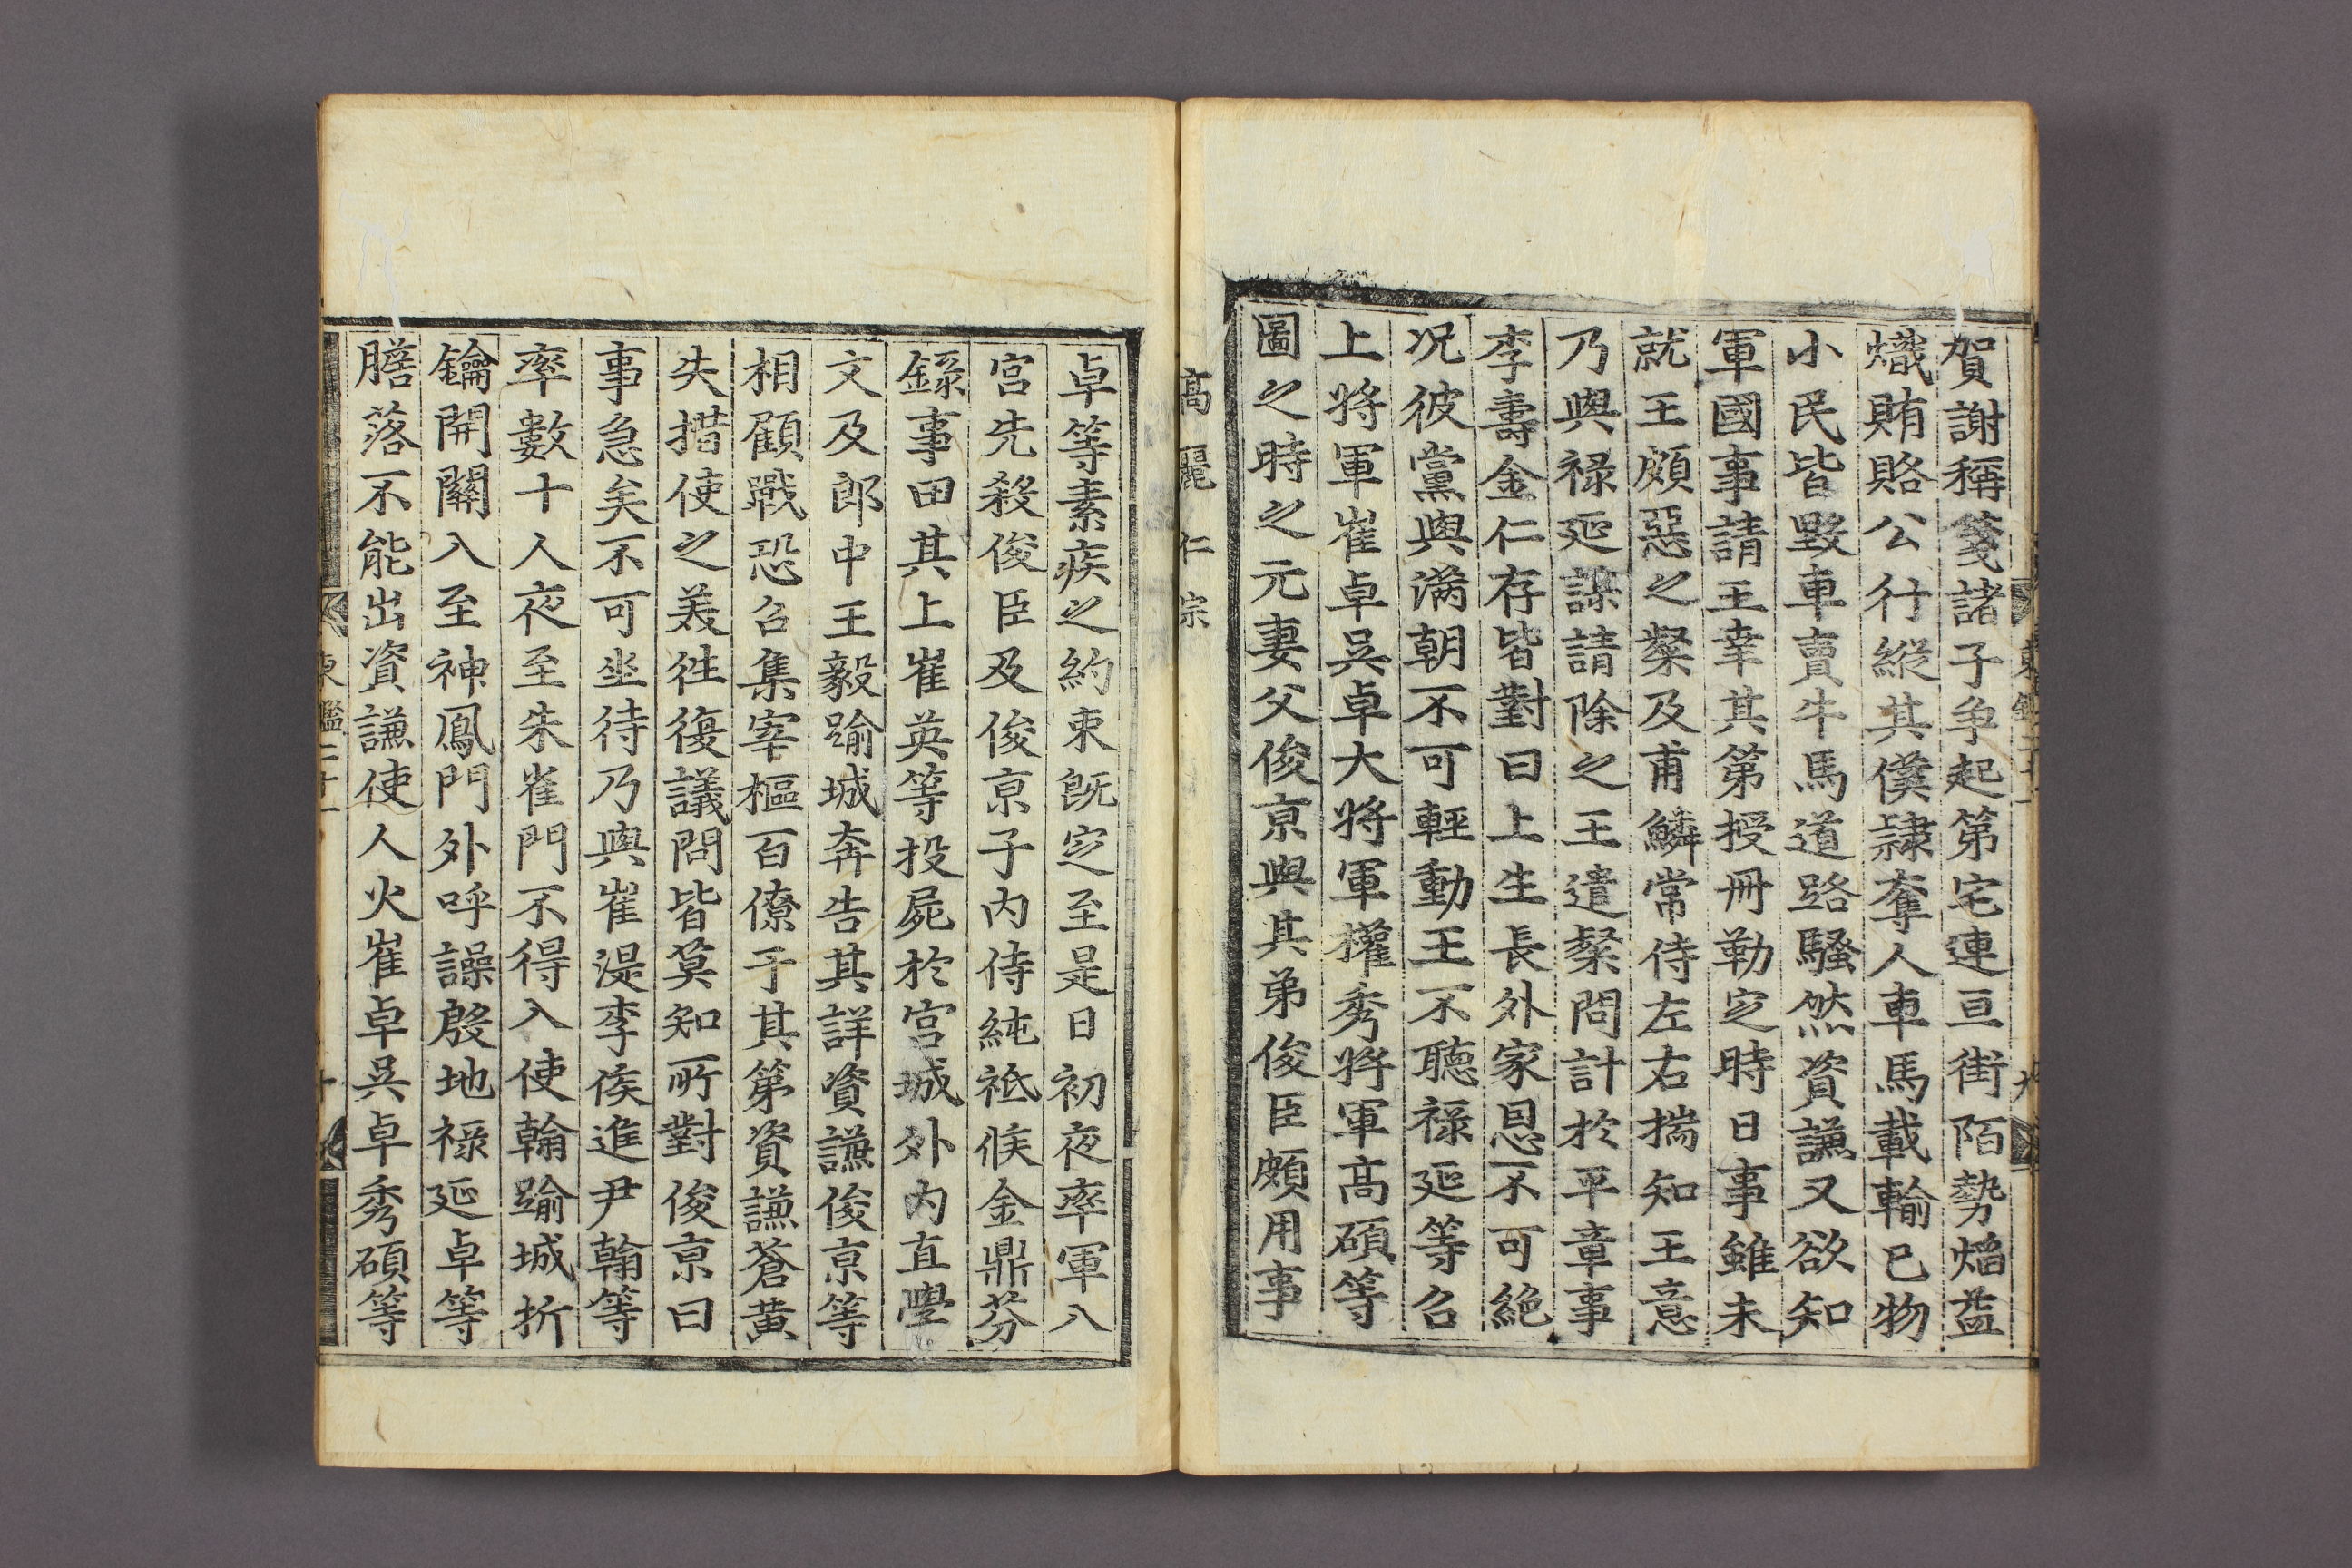 賀謝稱箋諸子争起第宅連亘街陌勢熖益
熾賄賂公行縱其僕隷奪人車馬載輸已物
小民皆毁車賣牛馬道路騷然資謙又欲知
軍國事請王幸其第授冊勒定時日事雖未
就王頗惡之粲及甫鱗常侍左右揣知王意
乃與禄延謀請除之王遣粲問計於平章事
李壽金仁存皆對曰上生長外家恩不可絶
况彼黨與满朝不可輕動王不聽禄延等召
上將軍崔卓吳卓大將軍權秀將軍髙碩等
圖之時之元妻父俊京與其弟俊臣頗用事
髙麗仁宗
卓等素疾之約束旣定至是日初夜率軍入
宮先殺俊臣及俊京子內侍純祗候金鼎芬
錄事田其上崔英等投屍於宮城外內直學
文及郎中王毅踰城奔告其詳資謙俊京等
相顧戰恐召集宰樞百僚于其第資謙蒼黃
失措使之美徃復議問皆莫知所對俊京曰
事急矣不可坐待乃與崔湜李侯進尹翰等
率數十人夜至朱雀門不得入使翰踰城折
鑰開關入至神鳳門外呼譟殷地禄延卓等
膽落不能出資謙使人火崔卓吳卓秀碩等
東鑑二十一
十